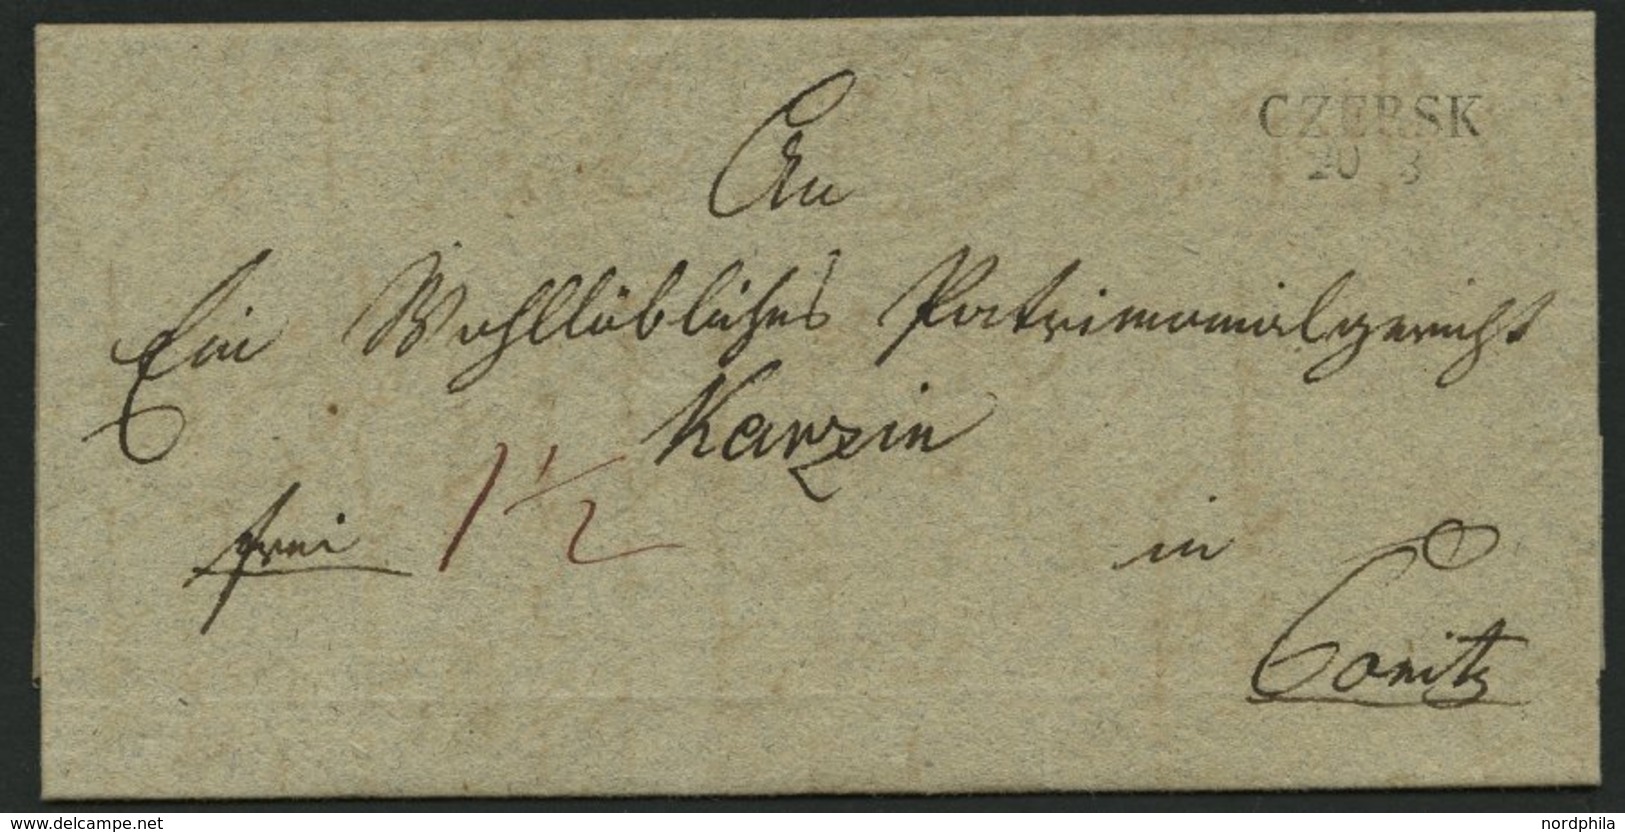 CZERSK
20 3
An
Ein Wohllöbliches Patrimonialgericht
Karzin
frei 1 1/2
in
Conitz
www.delcampe.net
nordphila